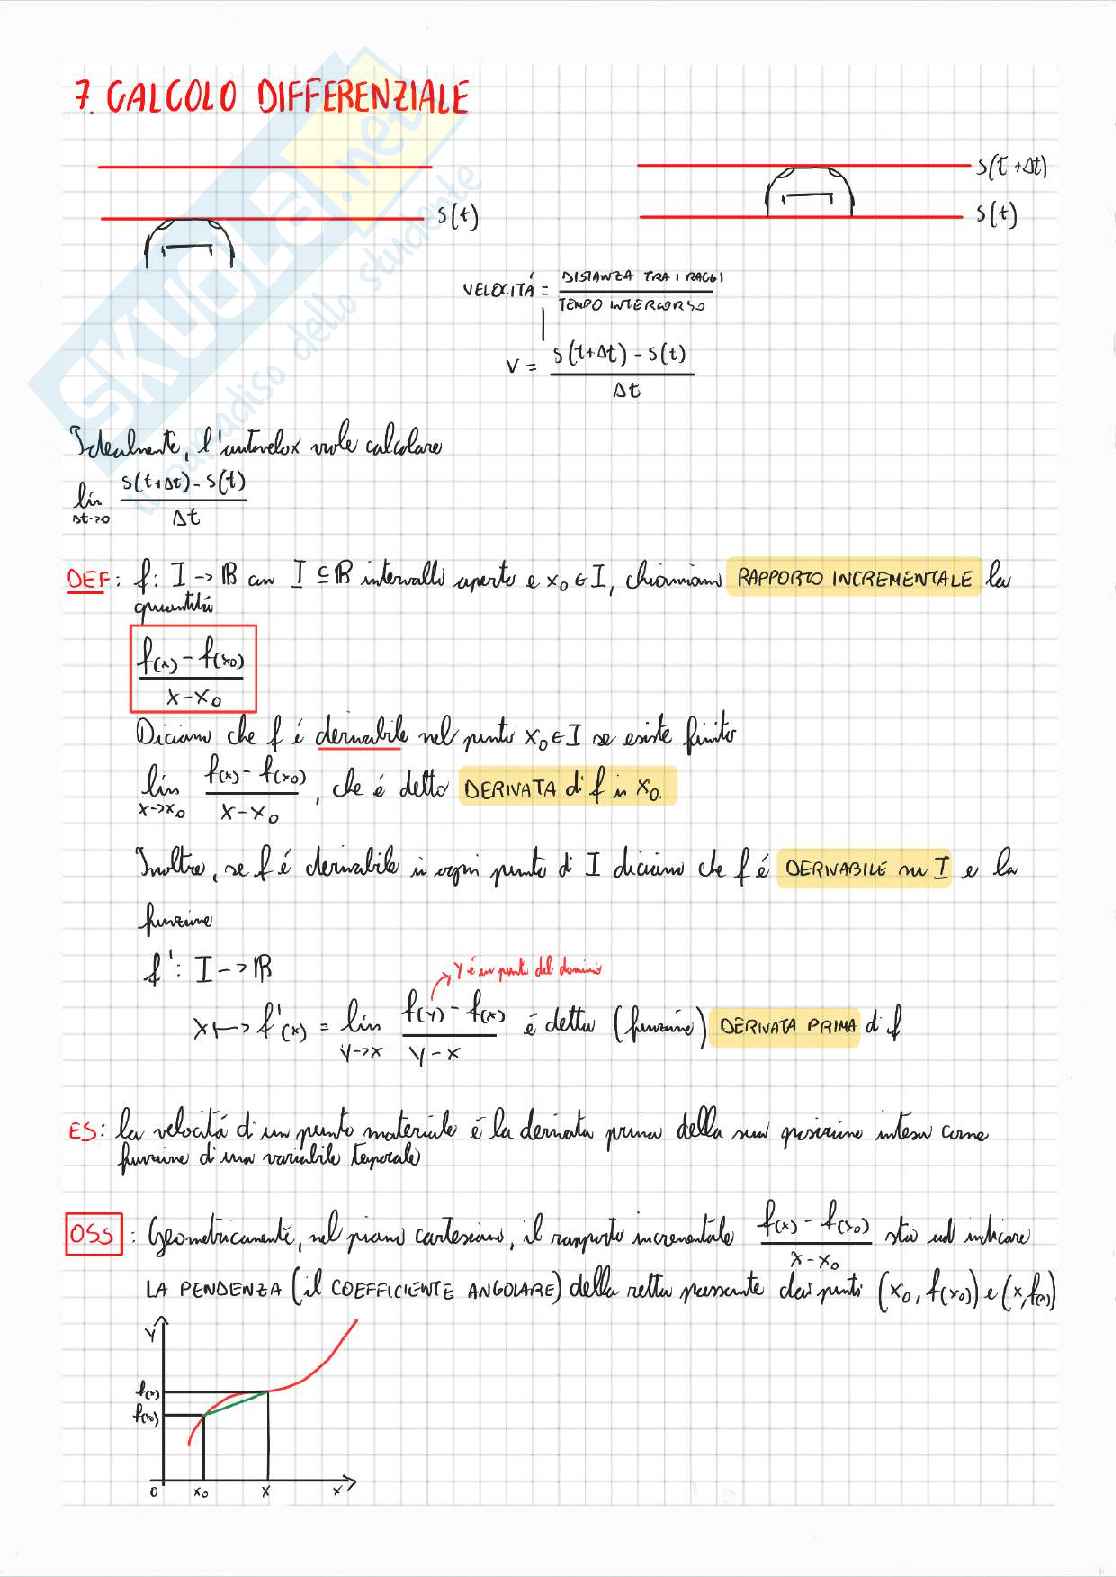 7. CALCOLO DIFFERENZIALE
S(t+Δt)
S(t)
S(t)
VELOCITÁ = DISTANZA TRA I RAGGI / TEMPO INTERCORSO
V = S(t+Δt) - S(t) / Δt
Idealmente, l'autovelox vuole calcolare
lim Δt->0 S(t+Δt) - S(t) / Δt
DEF: f: I -> ℝ con I ⊆ ℝ intervallo aperto e x₀ ∈ I, chiamiamo RAPPORTO INCREMENTALE la
quantità
f(x) - f(x₀) / x - x₀
Diciamo che f é derivabile nel punto x₀ ∈ I se esiste finito
lim x->x₀ f(x) - f(x₀) / x - x₀, che é detto DERIVATA di f in x₀.
Inoltre, se f é derivabile in ogni punto di I diciamo che f é DERIVABILE su I e la
funzione
f': I -> ℝ
y é un punto del dominio
x ↦ f'(x) = lim y->x f(y) - f(x) / y - x é detta (funzione) DERIVATA PRIMA di f
ES: la velocitá di un punto materiale é la derivata prima della sua posizione intesa come
funzione di una variabile temporale
OSS: Geometricamente, nel piano cartesiano, il rapporto incrementale f(x) - f(x₀) / x - x₀ sta ad indicare
LA PENDENZA (il COEFFICIENTE ANGOLARE) della retta passante dai punti (x₀, f(x₀)) e (x, f(x))
y
f(x)
f(x₀)
0 x₀ x x
SKUOLA.net
il paradiso dello studente